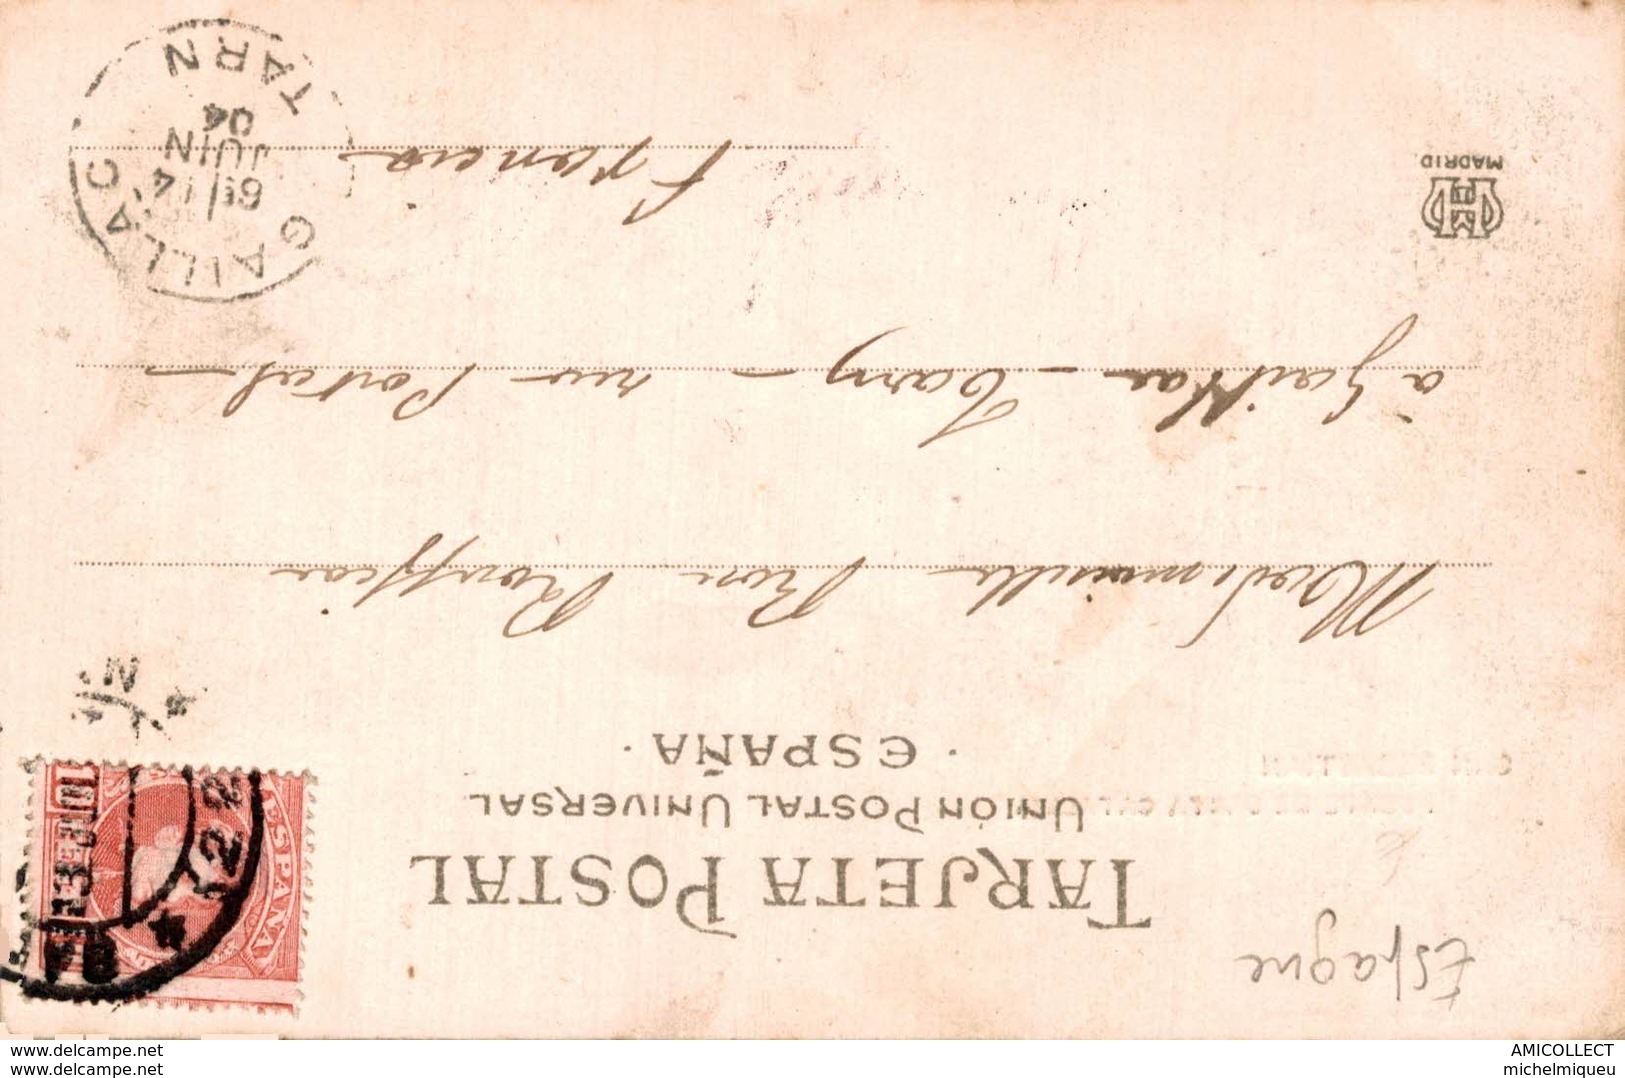 Espagne
TARJETA POSTAL
UNIÓN POSTAL UNIVERSAL
· ESPAÑA ·
ESPAÑA
Rouffiac
à Gaillac - Tarn - rue Portal -
Francia
MADRID
GAILLAC
14
JUIN
04
TARN
www.delcampe.net
www.delcampe.net
AMICOLLECT
michelmiqueu